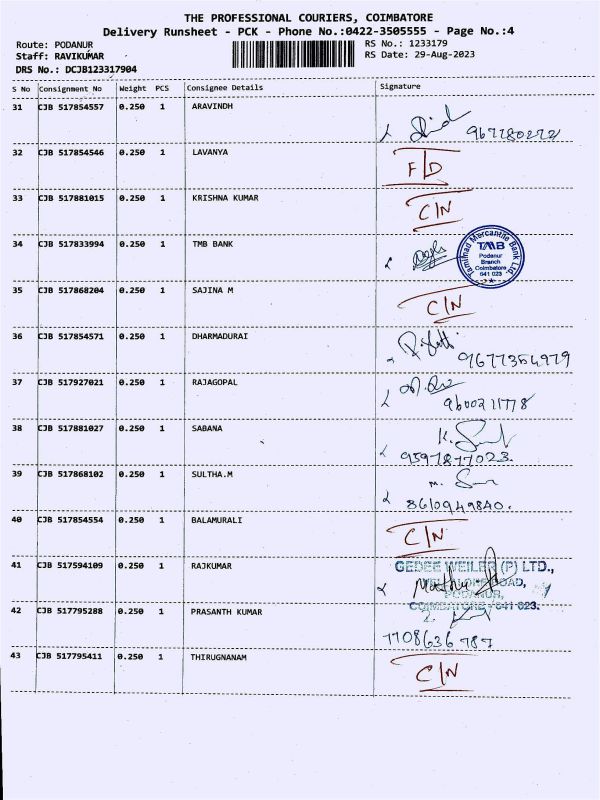 THE PROFESSIONAL COURIERS, COIMBATORE
Delivery Runsheet - PCK - Phone No.:0422-3505555 - Page No.:4
Route: PODANUR RS No.: 1233179
Staff: RAVIKUMAR RS Date: 29-Aug-2023
DRS No.: DCJB123317904
S No Consignment No Weight PCS Consignee Details Signature
31 CJB 517854557 0.250 1 ARAVINDH
32 CJB 517854546 0.250 1 LAVANYA F/D
33 CJB 517881015 0.250 1 KRISHNA KUMAR C/N
34 CJB 517833994 0.250 1 TMB BANK
Tamilnad Mercantile Bank Ltd.
TMB
Podanur
Branch
Coimbatore
641 023
35 CJB 517868204 0.250 1 SAJINA M C/N
36 CJB 517854571 0.250 1 DHARMADURAI
9677354979
37 CJB 517927021 0.250 1 RAJAGOPAL
9600211778
38 CJB 517881027 0.250 1 SABANA
9597877023.
39 CJB 517868102 0.250 1 SULTHA.M
8610949840.
40 CJB 517854554 0.250 1 BALAMURALI C/N
41 CJB 517594109 0.250 1 RAJKUMAR
GEDEE WEILER (P) LTD.,
ROAD,
PODANUR,
COIMBATORE - 641 023.
42 CJB 517795288 0.250 1 PRASANTH KUMAR
7708636787
43 CJB 517795411 0.250 1 THIRUGNANAM C/N